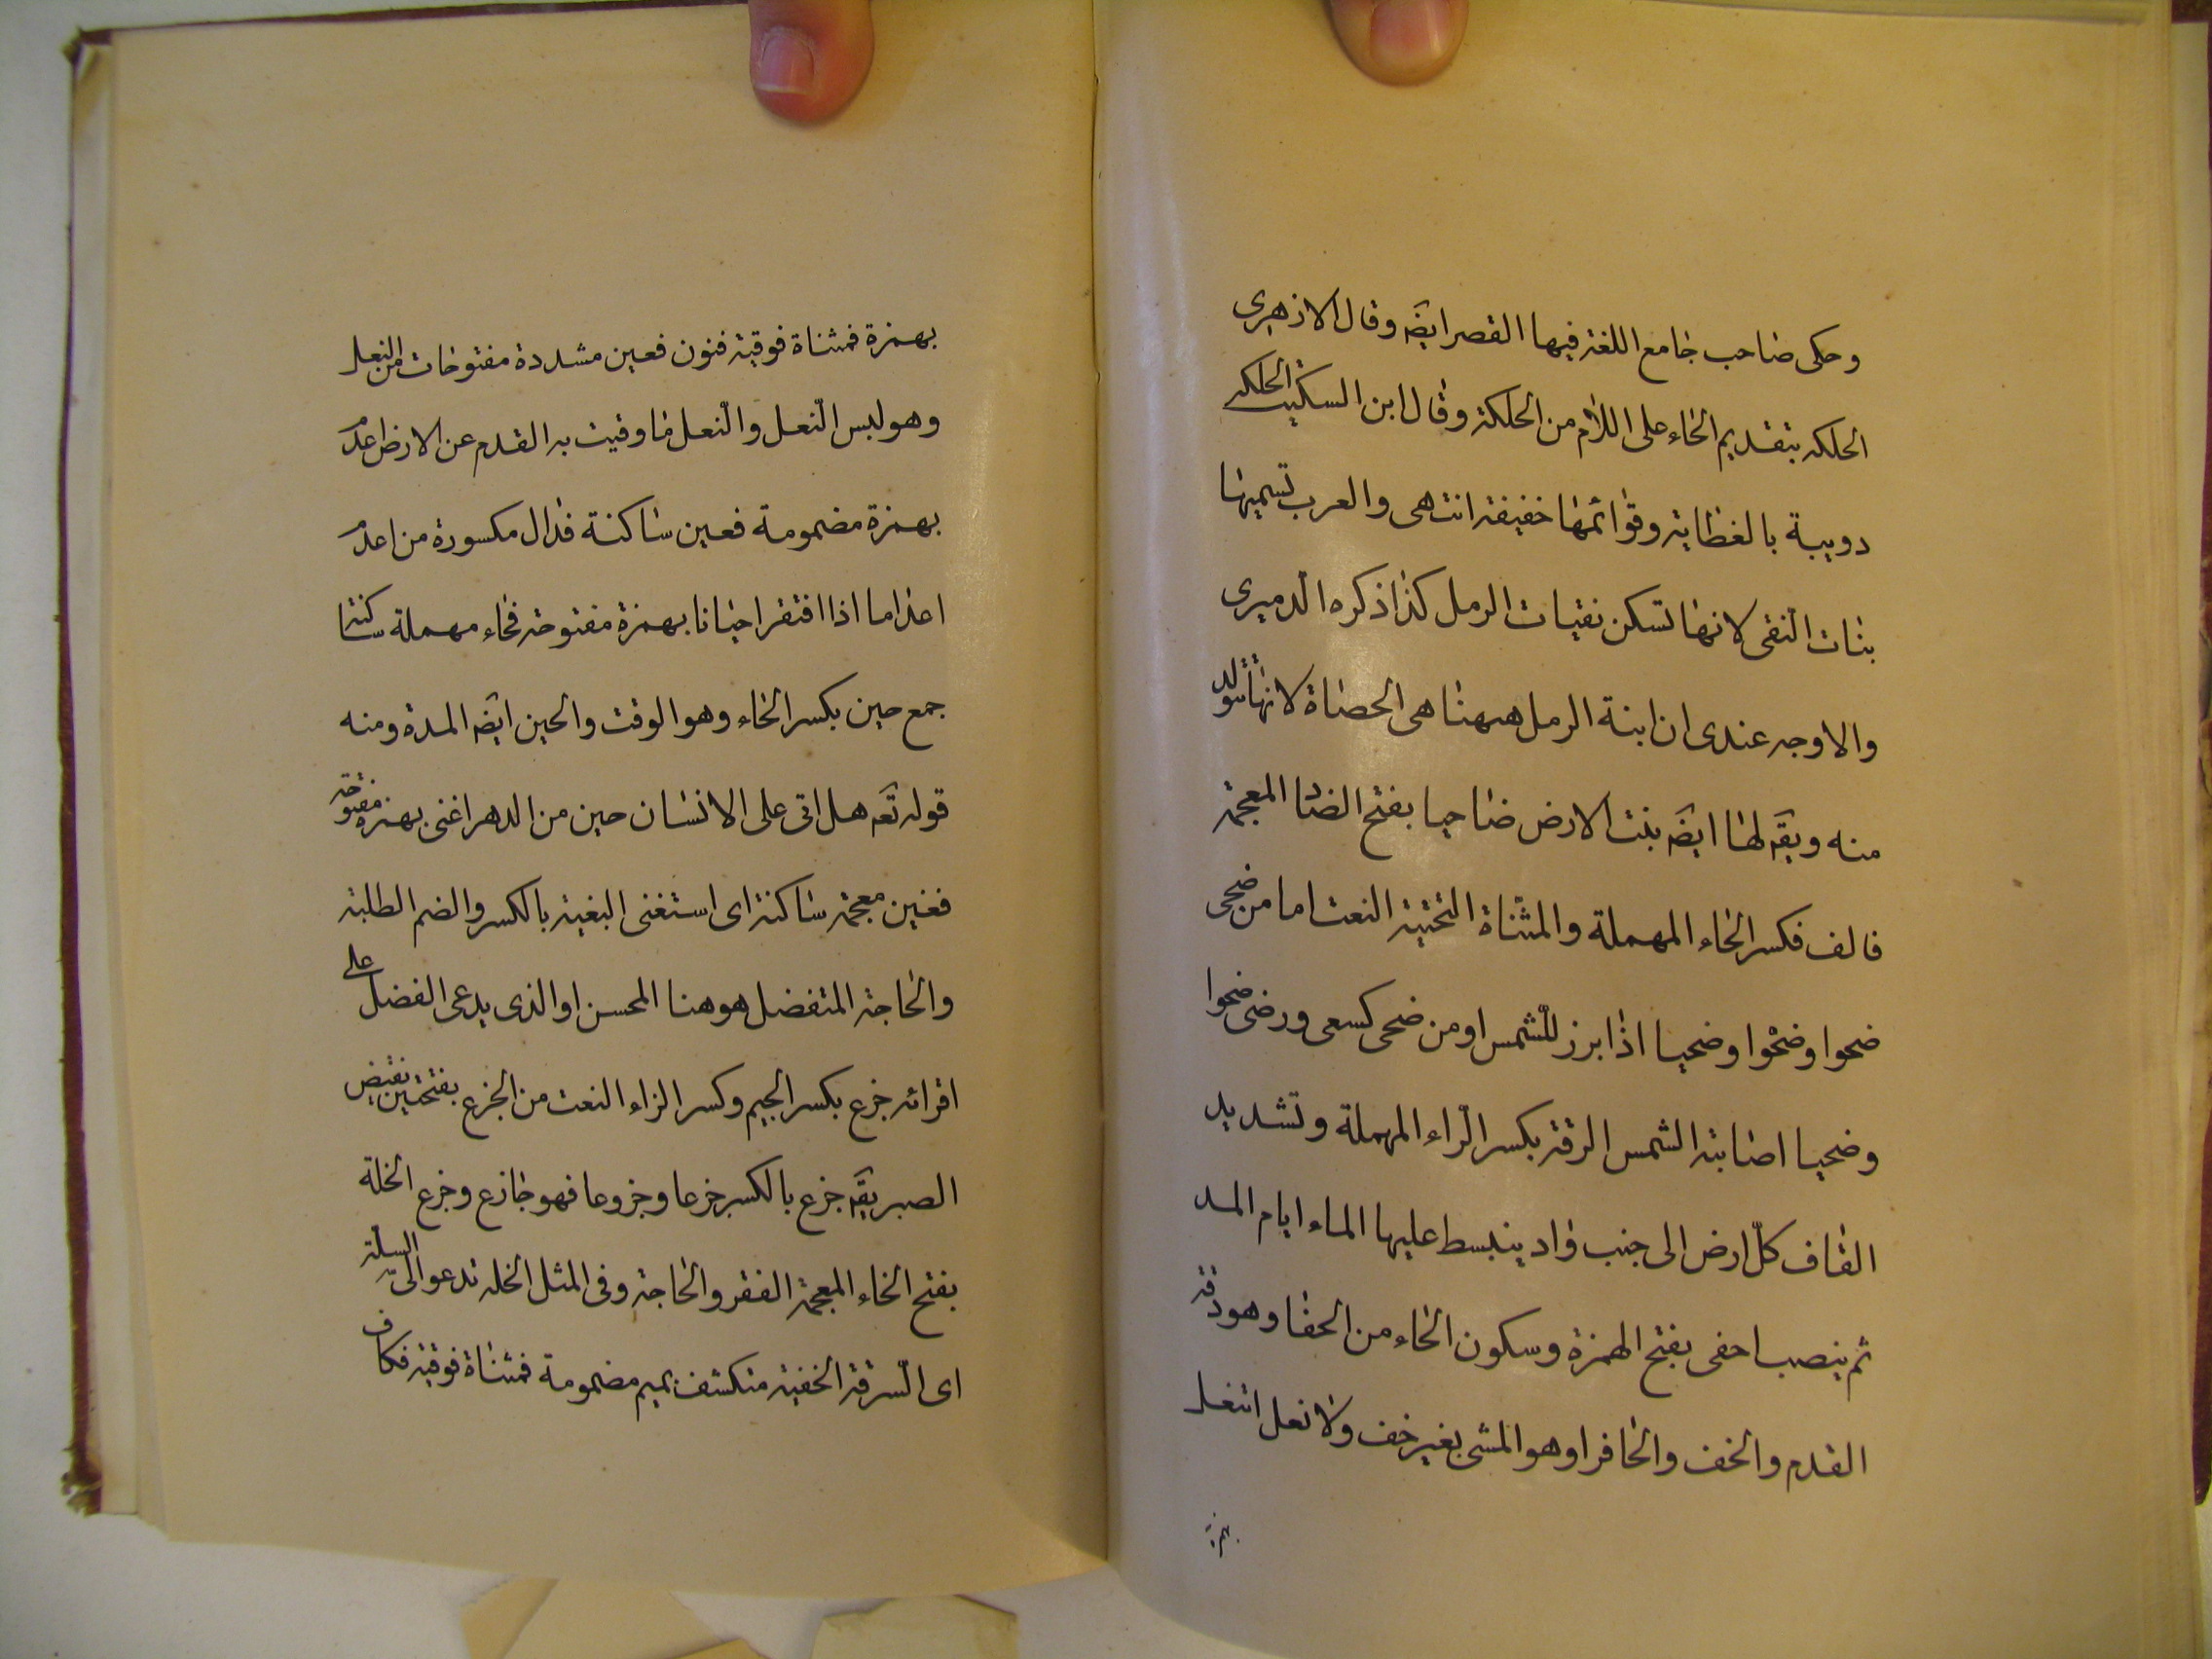 وحكى صاحب جامع اللغة فيها القصر ايضَه وقال الازهرى
الحلكه بتقديم الحاء على اللام من الحلكة وقال ابن السكيت الحلكه
دويبة بالغظاية وقوائمها خفيفة انتهى والعرب تسميها
بنات النقى لانها تسكن نقيات الرمل كذا ذكره الدميرى
والاوجه عندى ان ابنة الرمل ههنا هى الحصاة لانها تتولد
منه ويقَه لها ايضَه بنت الارض ضاحيا بفتح الضاد المعجمة
فالف فكسر الحاء المهملة والمثناة التحتية النعت اما من ضحى
ضحوا وضحْوا وضحيا اذا برز للشمس او من ضحى كسعى ورضى ضحوا
وضحيا اصابته الشمس الرقة بكسر الرّاء المهملة وتشديد
القاف كلّ ارض الى جنب واد ينبسط عليها الماء ايام المد
ثم ينصب احفى بفتح الهمزة وسكون الحاء من الحفا وهو دقة
القدم والخف والحافر او هو المشى بغير خف ولا نعل اتنعل
بهمزة
بهمزة فمثناة فوقية فنون فعين مشددة مفتوحات من التنعل
وهو لبس النّعل والنّعل ما وقيت به القدم عن الارض اعدم
بهمزة مضمومة فعين ساكنة فدال مكسورة من اعدم
اعداما اذا افتقر احيانا بهمزة مفتوحة فحاء مهملة ساكنة
جمع حين بكسر الحاء وهو الوقت والحين ايضَه المدة ومنه
قوله تعَه هل اتى على الانسان حين من الدهر اغنى بهمزة مفتوحة
فغين معجمة ساكنة اى استغنى البغية بالكسر والضم الطلبة
والحاجة المتفضل هو هنا المحسن او الذى يدعى الفضل على
اقرانه جزع بكسر الجيم وكسر الزاء النعت من الجزع بفتحتين نقيض
الصبر يقَه جزع بالكسر جزعا وجزوعا فهو جازع وجزع الخلة
بفتح الخاء المعجمة الفقر والحاجة وفى المثل الخله تدعو الى السلّة
اى السّرقة الخفية متكشف بميم مضمومة فمثناة فوقية فكاف